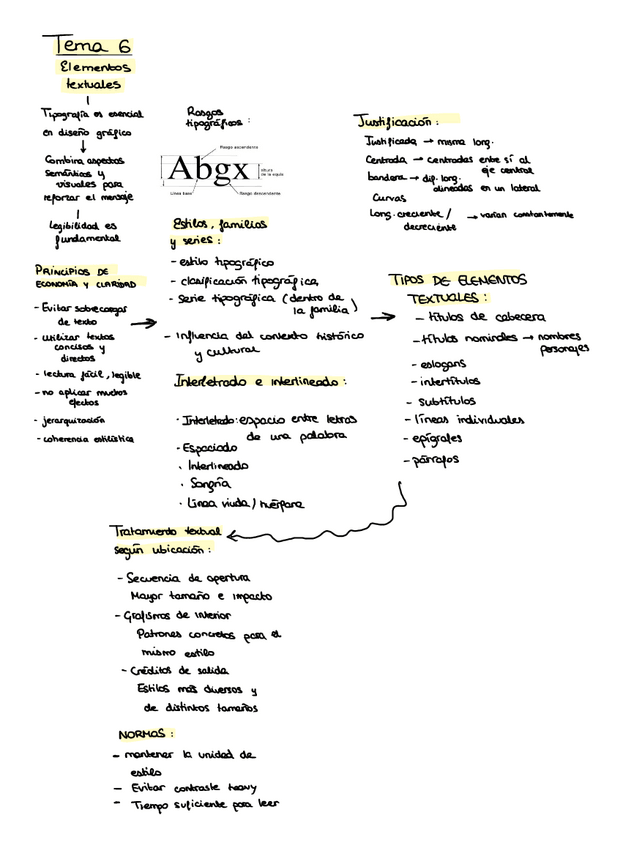 Tema 6
Elementos
textuales
Tipografía es esencial
en diseño gráfico
Combina aspectos
semánticos y
visuales para
reforzar el mensaje
legibilidad es
fundamental
PRINCIPIOS DE
ECONOMÍA Y CLARIDAD
- Evitar sobrecargar
de texto
- utilizar textos
concisos y
directos
- lectura fácil, legible
- no aplicar muchos
efectos
- jerarquización
- coherencia estilística
Rasgos
tipográficos :
Rasgo ascendente
Abgx
altura
de la equis
Línea base
Rasgo descendente
Estilos, familias
y series :
- estilo tipográfico
- clasificación tipográfica
- serie tipográfica (dentro de
la familia)
- Influencia del contexto histórico
y cultural
Interletrado e interlineado :
· Interletrado: espacio entre letras
de una palabra
- Espaciado
· Interlineado
· Sangría
· Línea viuda / huérfana
Justificación :
Justificada → misma long.
Centrada → centradas entre sí al
eje central
bandera → dif. long.
alineadas en un lateral
Curvas
Long. creciente / → varían constantemente
decreciente
TIPOS DE ELEMENTOS
TEXTUALES :
- títulos de cabecera
- títulos nominales → nombres
personajes
- eslogans
- intertítulos
- subtítulos
- líneas individuales
- epígrafes
- párrafos
Tratamiento textual
según ubicación :
- Secuencia de apertura
Mayor tamaño e impacto
- Grafismos de interior
Patrones concretos para el
mismo estilo
- Créditos de salida
Estilos más diversos y
de distintos tamaños
NORMAS :
- mantener la unidad de
estilo
- Evitar contraste heavy
- Tiempo suficiente para leer